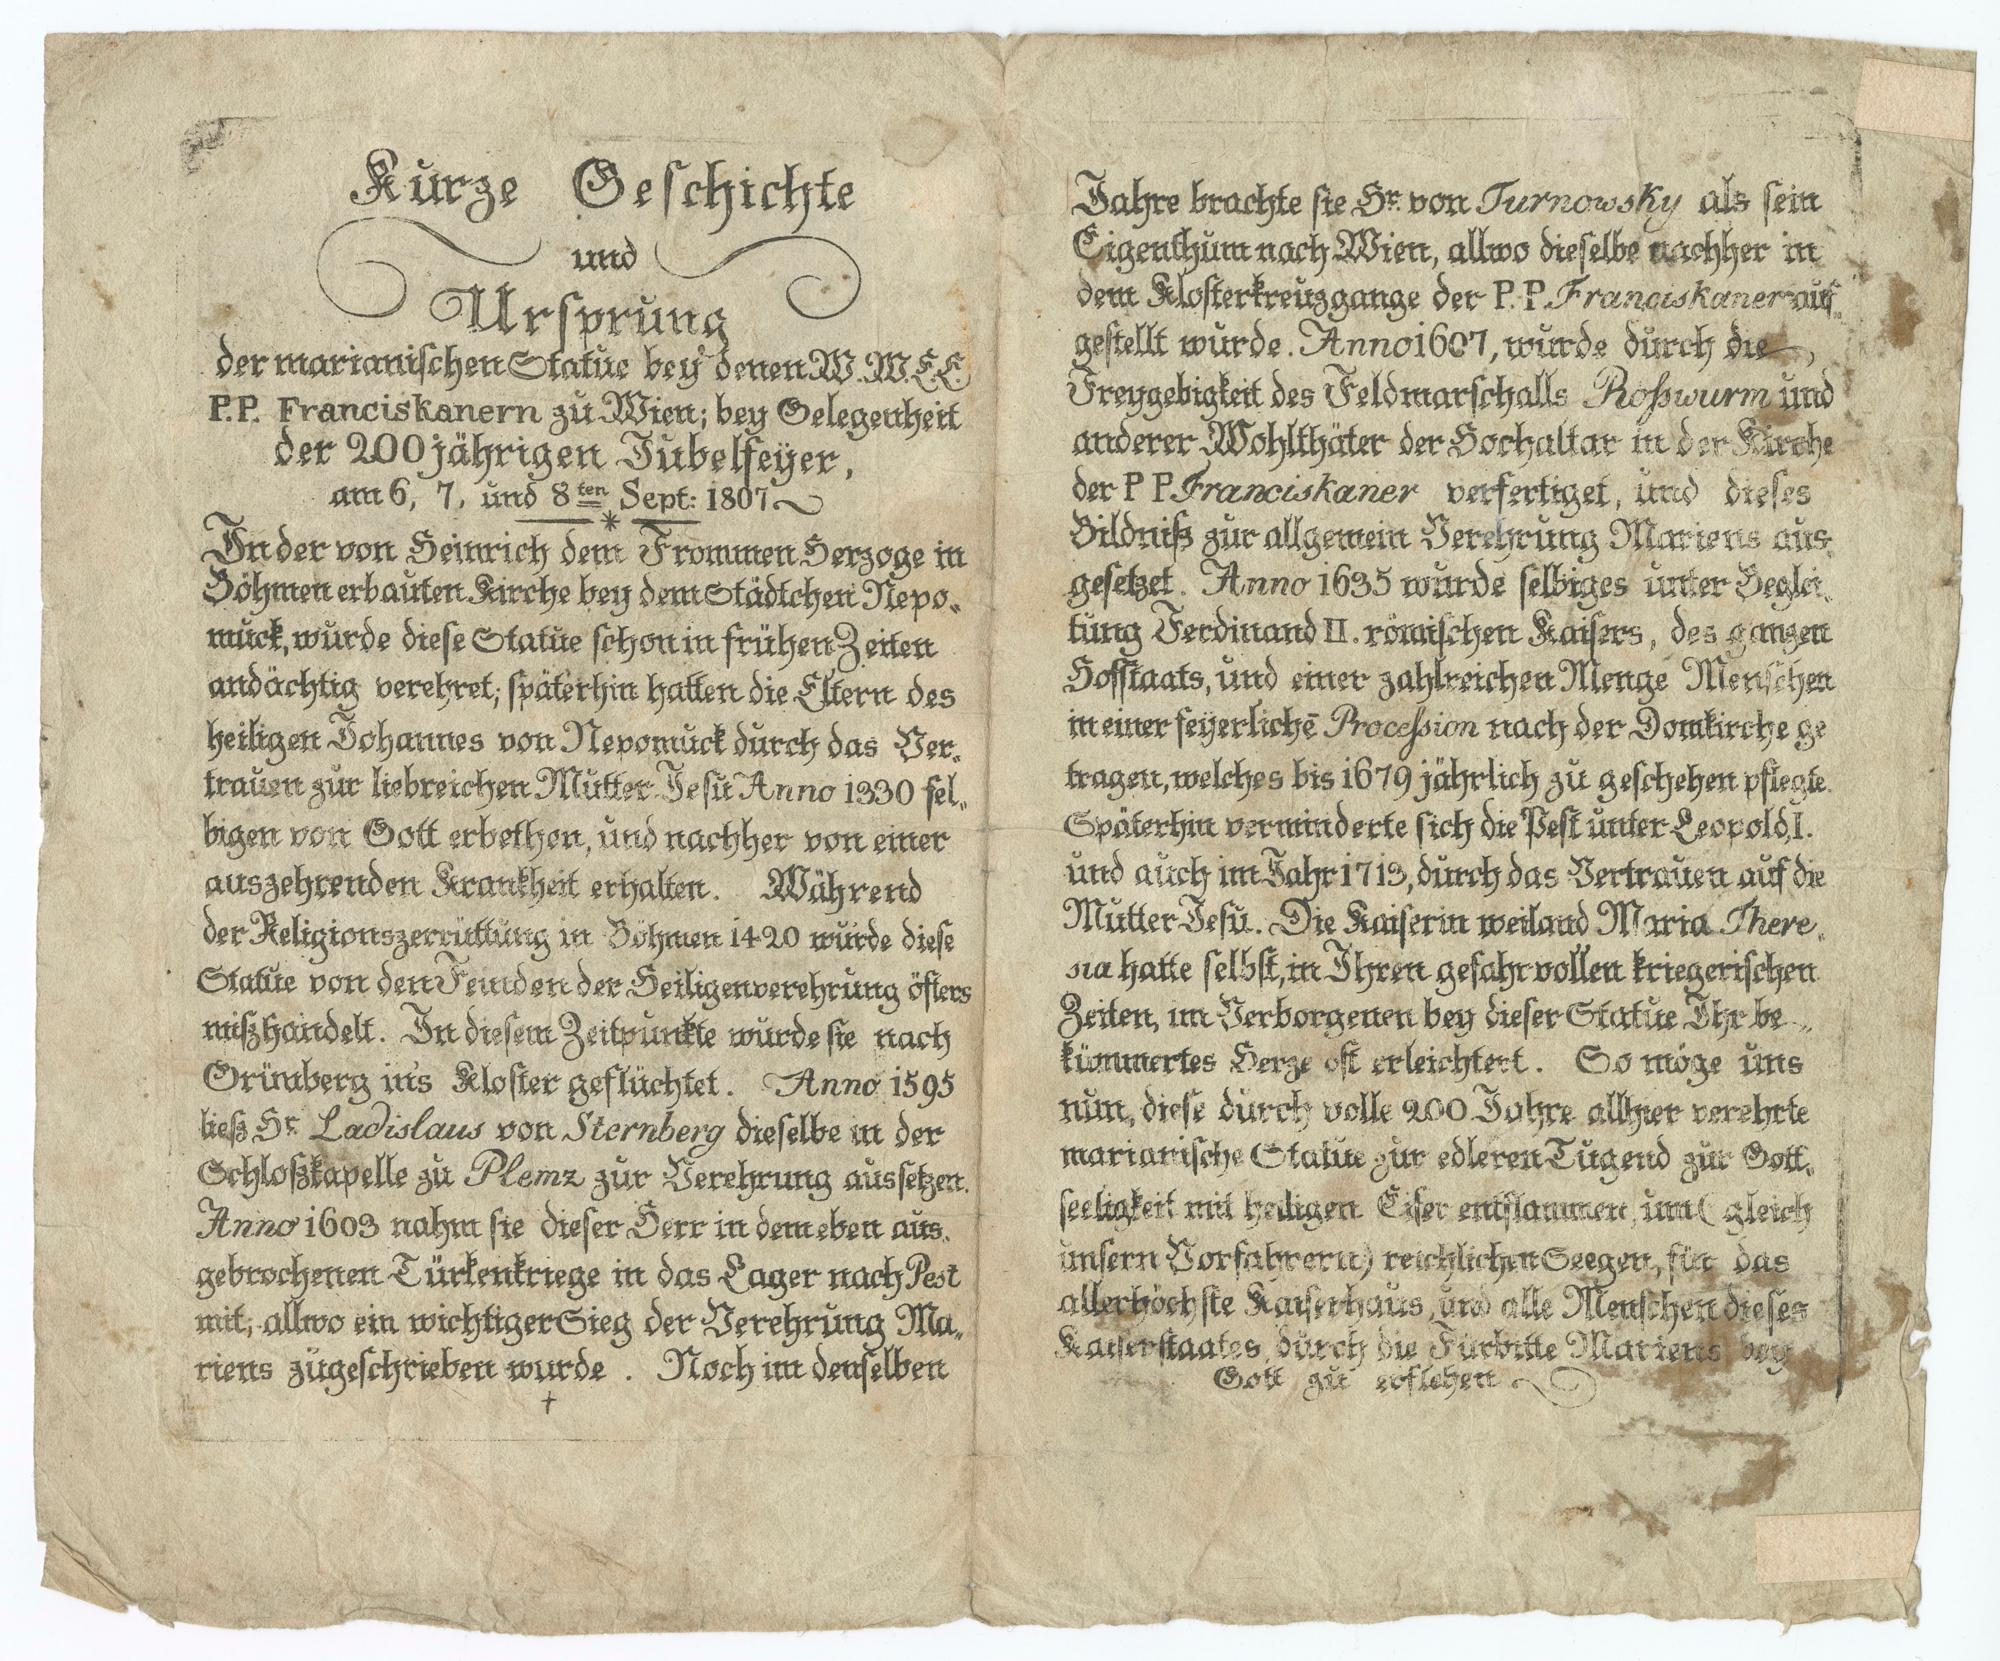 Kurze Geschichte
und
Ursprung
der marianischen Statue bey denen W.W.E.E.
P.P. Franciskanern zu Wien; bey Gelegenheit
der 200 jährigen Jubelfeyer,
am 6, 7, und 8ten Sept: 1807
In der von Heinrich dem Frommen Herzoge in
Böhmen erbauten Kirche bey dem Städtchen Nepo„
muck, wurde diese Statue schon in frühen Zeiten
andächtig verehret; späterhin hatten die Eltern des
heiligen Johannes von Nepomuck durch das Ver„
trauen zur liebreichen Mutter Jesu Anno 1330 sel„
bigen von Gott erbethen, und nachher von einer
auszehrenden Krankheit erhalten. Während
der Religionszerrüttung in Böhmen 1420 wurde diese
Statue von den Feinden der Heiligenverehrung öfters
mißhandelt. In diesem Zeitpunkte wurde sie nach
Grünberg in's Kloster geflüchtet. Anno 1595
ließ Hr. Ladislaus von Sternberg dieselbe in der
Schloßkapelle zu Plemz zur Verehrung aussetzen.
Anno 1603 nahm sie dieser Herr in dem eben aus„
gebrochenen Türkenkriege in das Lager nach Pest
mit; allwo ein wichtiger Sieg der Verehrung Ma„
riens zugeschrieben wurde. Noch im denselben
Jahre brachte sie Hr. von Turnowsky als sein
Eigenthum nach Wien, allwo dieselbe nachher in
dem Klosterkreuzgange der P.P. Franciskaner auf„
gestellt wurde. Anno 1607, wurde durch die
Freygebigkeit des Feldmarschalls Roßwurm und
anderer Wohlthäter der Hochaltar in der Kirche
der P P. Franciskaner verfertiget, und dieses
Bildniß zur allgemein Verehrung Mariens aus„
gesetzet. Anno 1635 wurde selbiges unter Beglei„
tung Ferdinand II. römischen Kaisers, des ganzen
Hofstaats, und einer zahlreichen Menge Menschen
in einer feyerlichē Procession nach der Domkirche ge
tragen, welches bis 1679 jährlich zu geschehen pflegte.
Späterhin verminderte sich die Pest unter Leopold I.
und auch im Jahr 1713, durch das Vertrauen auf die
Mutter Jesu. Die Kaiserin weiland Maria There„
sia hatte selbst, in Ihren gefahrvollen kriegerischen
Zeiten, im Verborgenen bey dieser Statue Ihr be„
kümmertes Herze oft erleichtert. So möge uns
nun, diese durch volle 200 Jahre allhier verehrte
marianische Statue zur edleren Tugend zur Gott„
seeligkeit mit heiligen Eifer entflammen, um ( gleich
unsern Vorfahrern) reichlichen Seegen, für das
allerhöchste Kaiserhaus, und alle Menschen dieses
Kaiserstaates, durch die Fürbitte Mariens bey
Gott zu erflehen